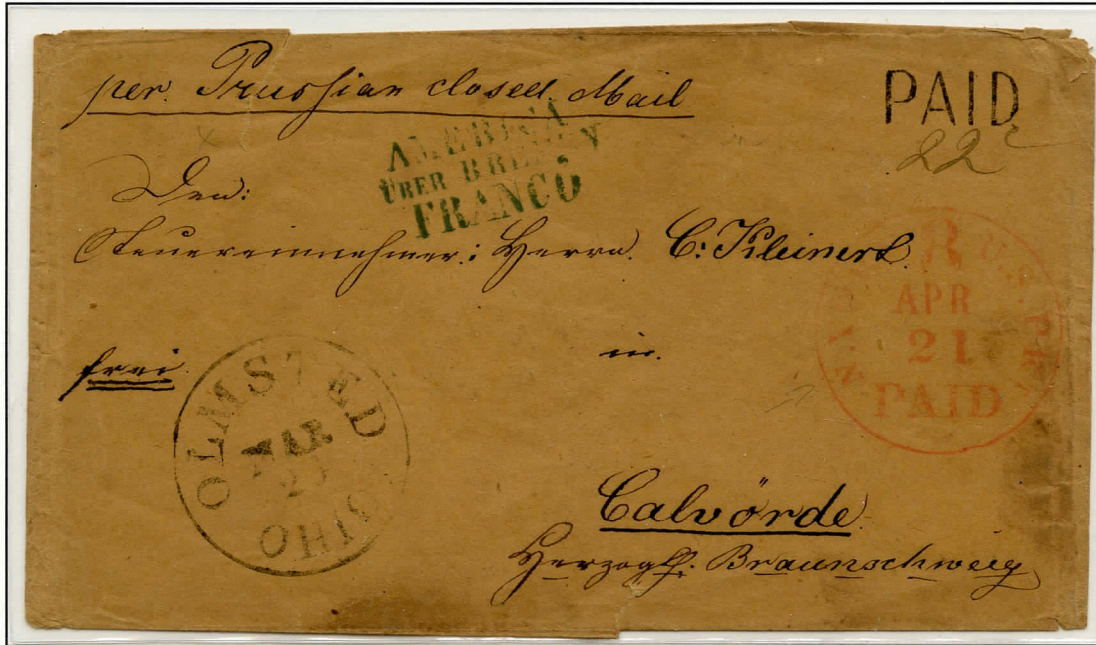 per. Prussian closed. Mail
PAID
22
AMERICA
ÜBER BREMEN
FRANCO
Den:
Steuereinnehmer: Herrn. C: Kleinert.
APR
21
PAID
frei.
in.
OLMSTED
MAR
OHIO
Calvörde.
Herzogth. Braunschweig